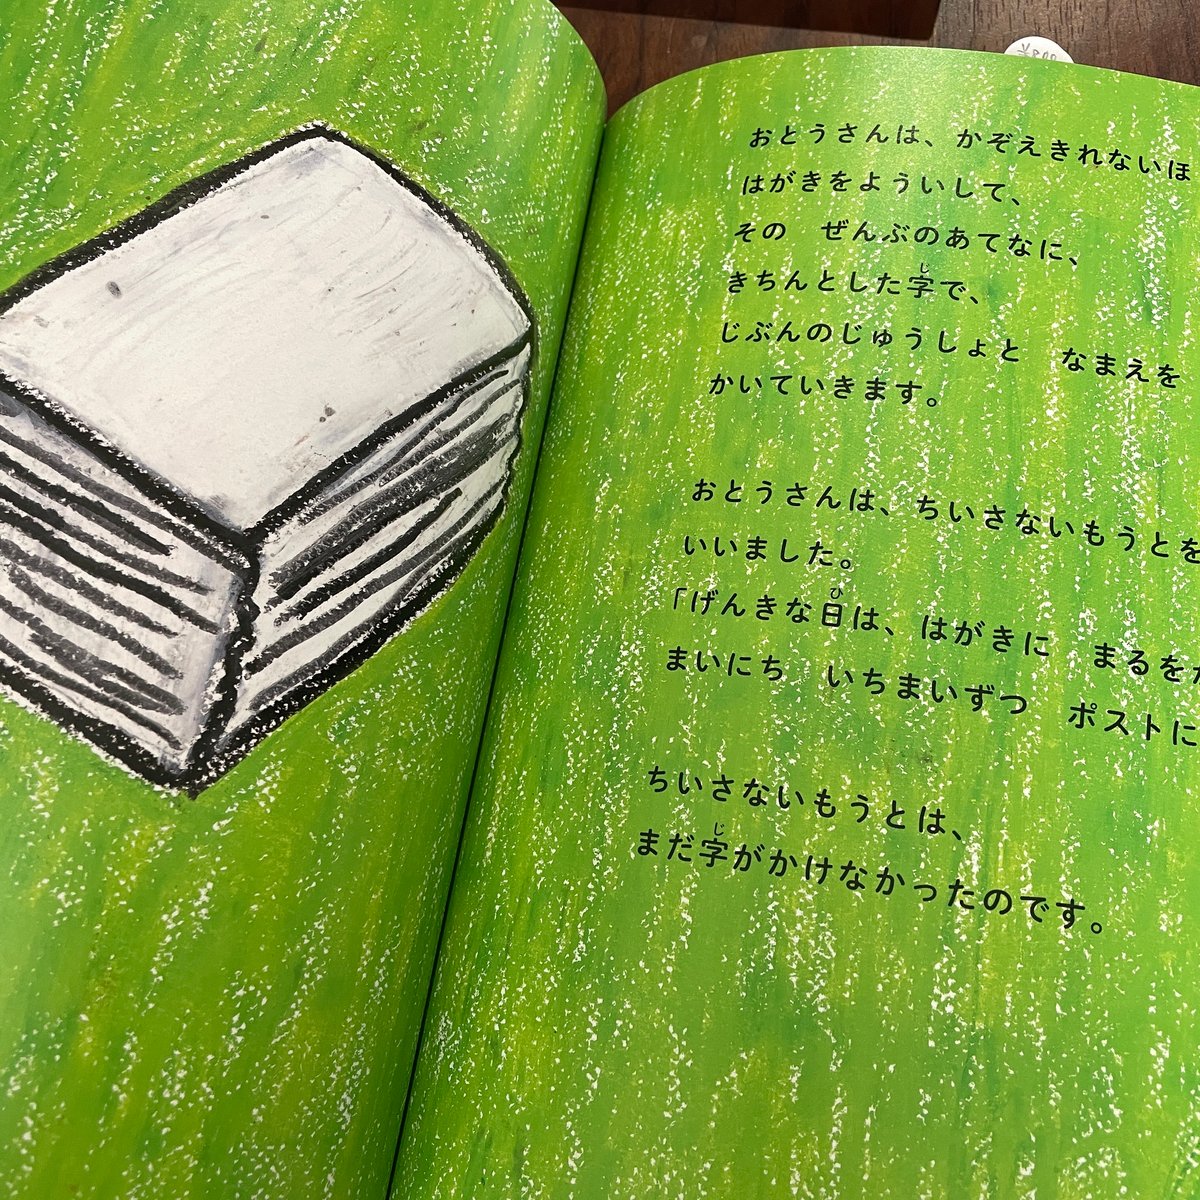 おとうさんは、かぞえきれないほ
はがきをよういして、
その　ぜんぶのあてなに、
きちんとした字で、
じぶんのじゅうしょと　なまえを
かいていきます。
おとうさんは、ちいさないもうとを
いいました。
「げんきな日は、はがきに　まるを
まいにち　いちまいずつ　ポストに
ちいさないもうとは、
まだ字がかけなかったのです。